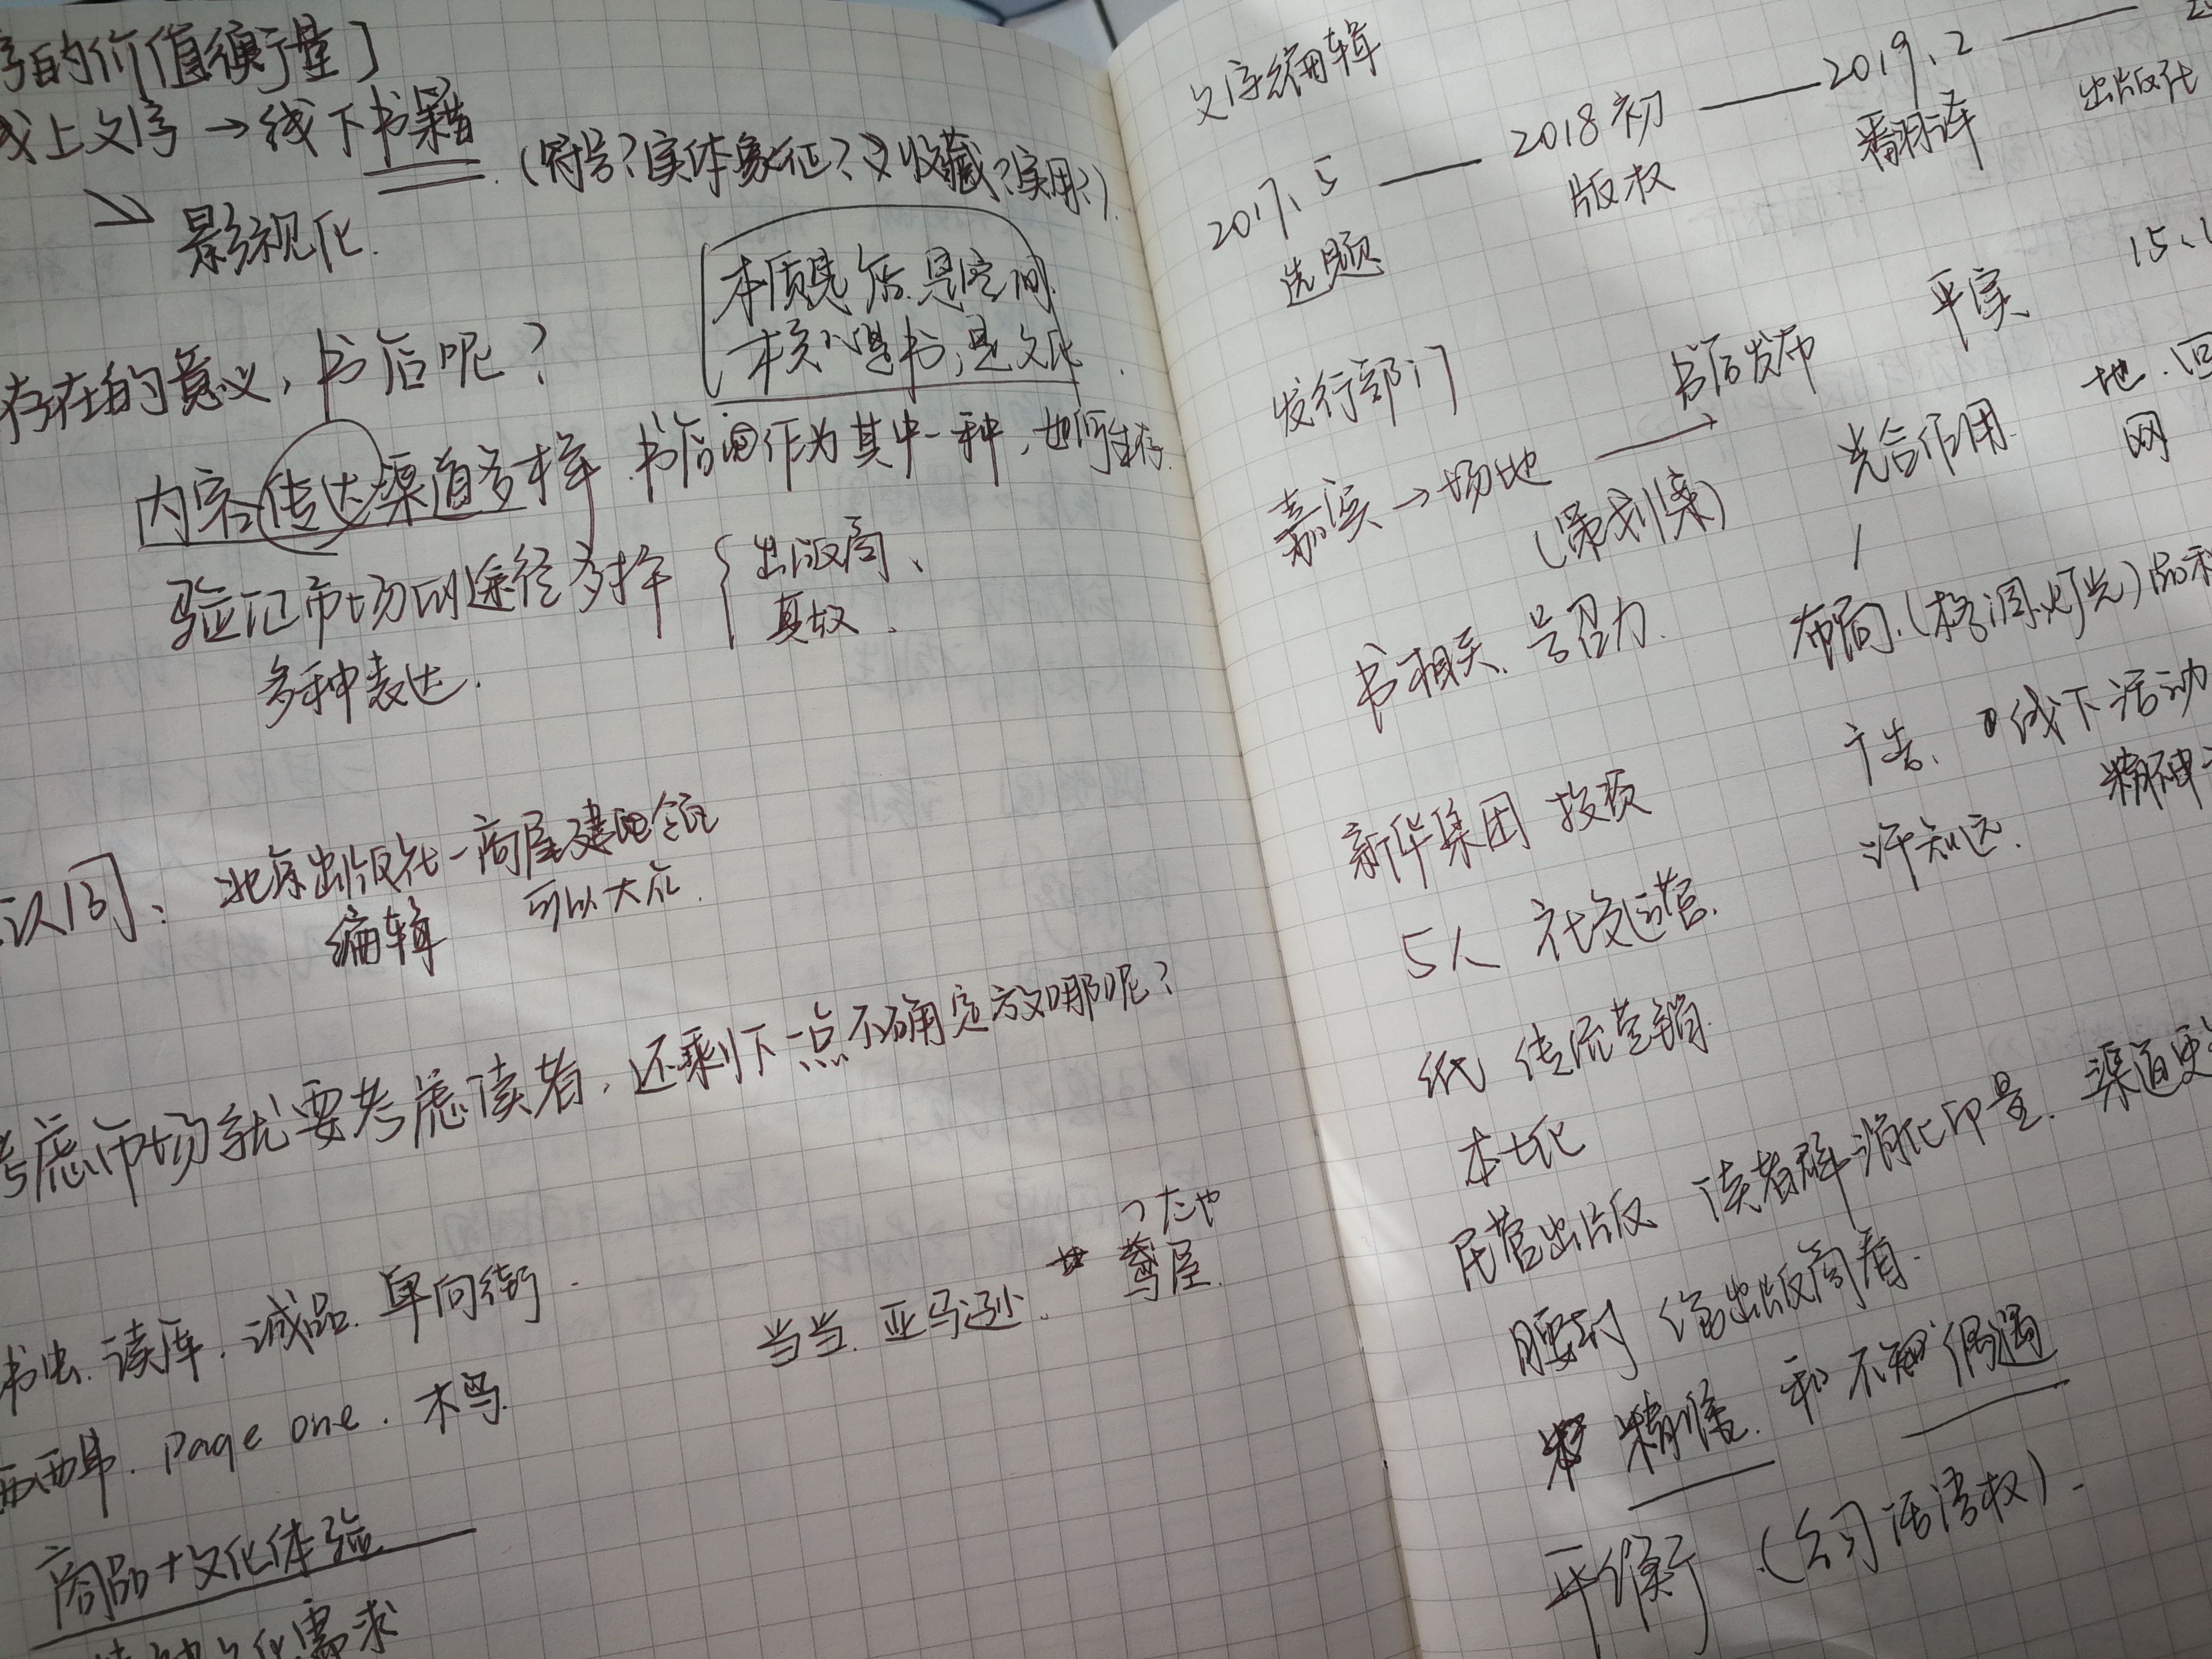 的价值衡量]
线上文字→线下书籍
(符号?实体象征?收藏?实用?)
↘影视化.
本质是店.是空间.
本质是书,是文化
存在的意义,书店呢?
内容传达渠道多样.书店作为其中一种,如何生存.
验证市场的途径多样{出版商、
真故.
多种表达.
认同、北京出版社-商屋
编辑 可以大众.
考虑市场就要考虑读者,还剩下一点不确定放哪呢?
书虫.读库.诚品.单向街.
つたや
当当.亚马逊.蔦屋.
西西弗.Page one.木马.
商品+文化体验
文化需求
文字编辑
2017.5——2018初——2019.2——
选题 版权 翻译 出版社
发行部门 书店发布 平实 15.
嘉宾→场地→光合作用.地.
(策划案) 网
书相关.号召力. 布局.(格调.灯光)
广告、线下活动
新华集团 投资 精神
许知远.
5人 社交运营.
纸 传统营销.
本土化
民营出版 读者群消化印量.渠道更
腰封 给出版商看.
精准.和不期偶遇
平衡(公司话语权).